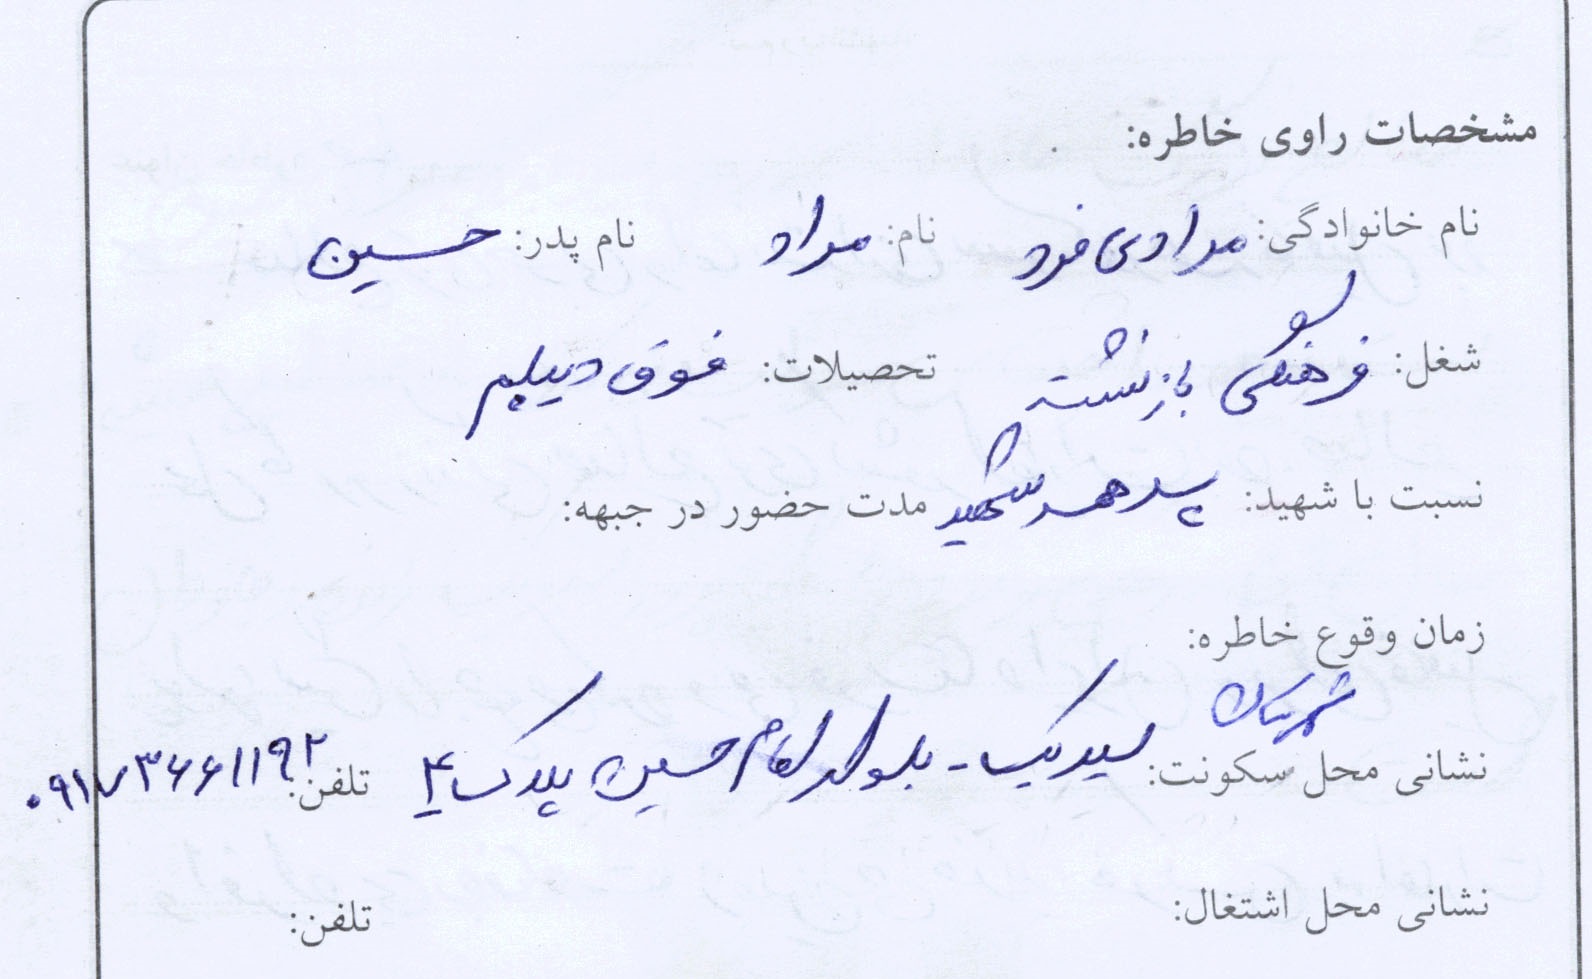 مشخصات راوی خاطره:
نام خانوادگی: مرادی فرد نام: مراد نام پدر: حسین
شغل: فرهنگی بازنشسته تحصیلات: فوق دیپلم
نسبت با شهید: پدر همسر شهید مدت حضور در جبهه:
زمان وقوع خاطره:
نشانی محل سکونت: - بلوار امام حسین پلاک ۴ تلفن: ۰۹۱۷۳۶۶۱۱۹۲
نشانی محل اشتغال: تلفن: